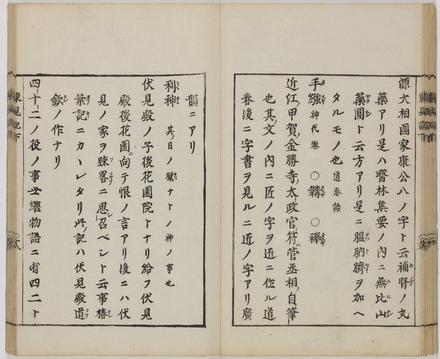 源大相國家康公八ノ字ト云補腎ノ丸
藥アリ是ハ醫林集要ノ内ニ無比山
藥圓ト云方アリ是ニ膃肭臍ヲ加ヘ
タルモノ也 道春話
手繦 神代卷 ○韝 ○襷
近江ノ甲賀金勝寺ノ太政官符管丞相ノ自筆
也其文ノ内ニ匠ノ字ヲ近ニ作ル道
春後ニ字書ヲ見ルニ近ノ字アリ廣
韻ニアリ
利神 其日ノ獄ナトノ神ノ事也
伏見殿ノ子後花園院トナリ給フ伏見
殿後花園向テ恨ノ言アリ後ニハ伏
見ノ家ヲ疎畧ニ思召ベシト云事椿
葉記ニカヽレタリ此記ハ伏見殿道
欽ノ作ナリ
四十二ノ役ノ事世繼物語ニ有四二ト